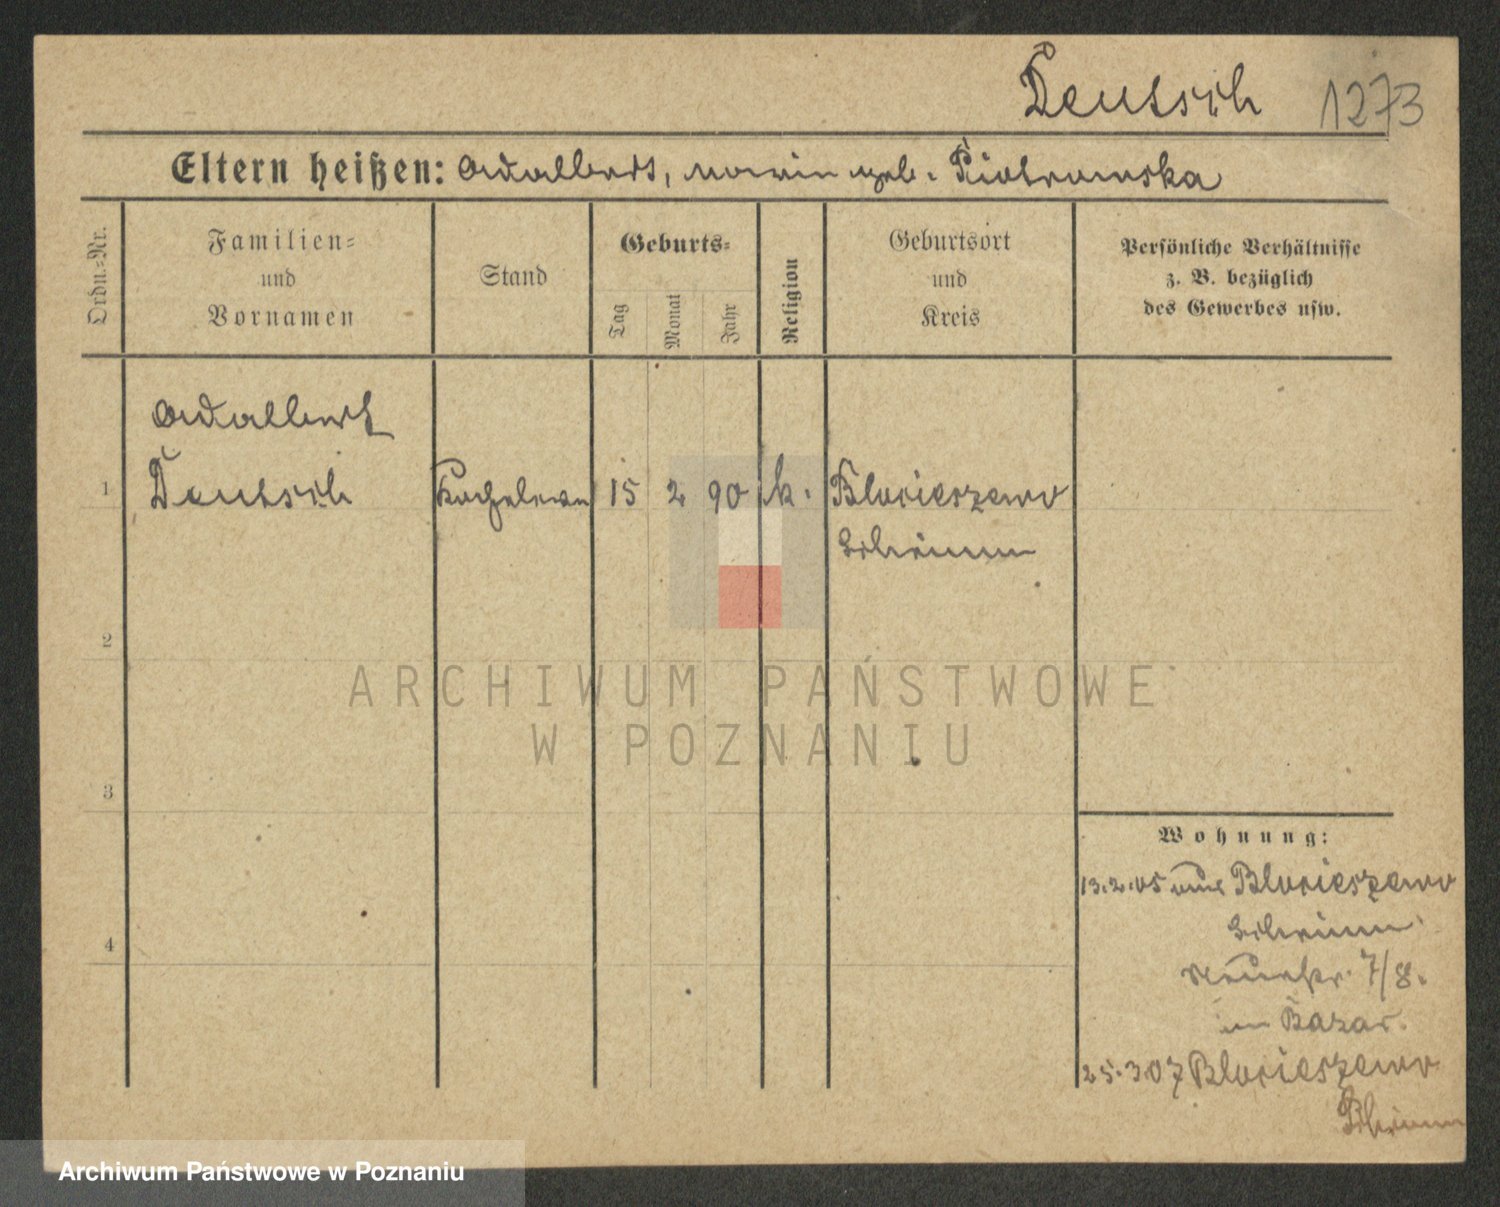 Deutsch 1273
Eltern heißen: Adalbert, Marin geb. Piotrowska
Ordn.-Nr.
Familien-
und
Vornamen
Stand
Geburts-
Tag
Monat
Jahr
Religion
Geburtsort
und
Kreis
Persönliche Verhältnisse
z. B. bezüglich
des Gewerbes usw.
Adalbert
1 Deutsch 15 2 90 k. Blociszewo
Schrimm
2
ARCHIWUM PAŃSTWOWE
W POZNANIU
3
Wohnung:
13.2.05 aus Blociszewo
4 Schrimm
Neuestr. 7/8.
im Bazar.
25.3.07 Blociszewo
Schrimm
Archiwum Państwowe w Poznaniu